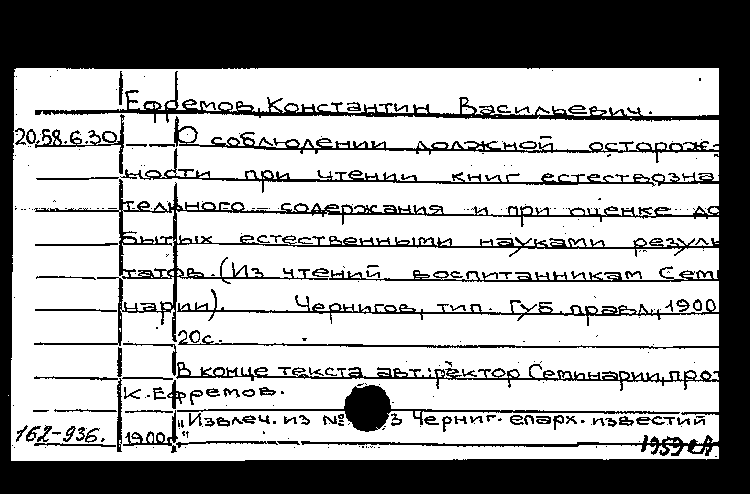 Ефремов, Константин Васильевич.
20.58.6.30 О соблюдении должной осторож-
ности при чтении книг естествозна
тельного содержания и при оценке до
бытых естественными науками резуль
татов. (Из чтений воспитанникам Семи
нарии). Чернигов, тип. Губ. правл., 1900
20с.
В конце текста авт.: ректор Семинарии, прот
К. Ефремов.
"Извлеч. из № 3 Черниг. епарх. известий
162-936. 1900г."
1959 еА